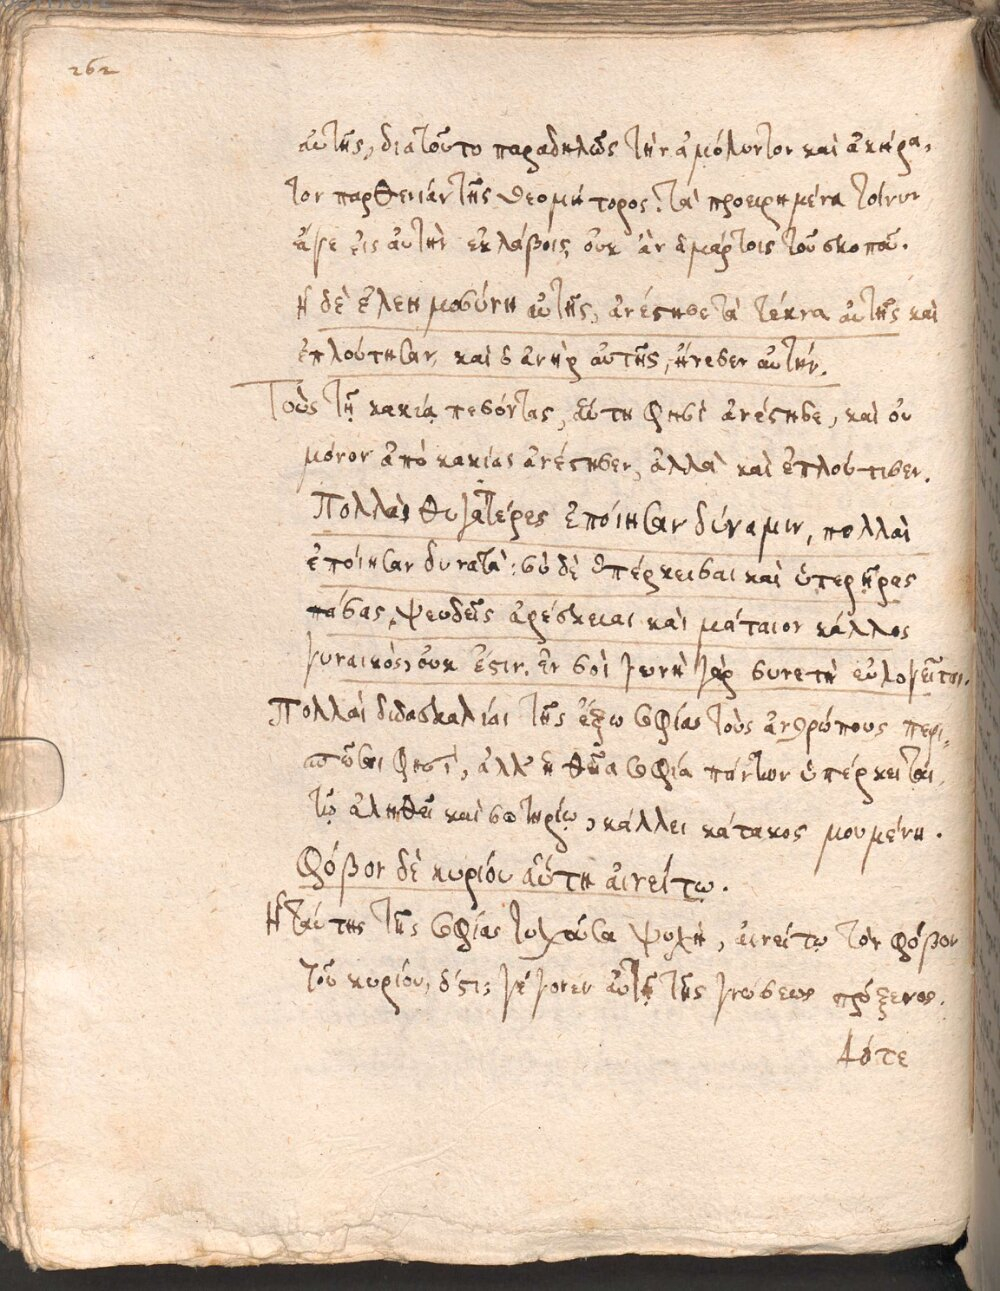 262
αυτῆς, διατοῦτο παραδηλῶς τὴν ἀμόλυντον καὶ ἀκήρα,
τον παρθενίαν τῆς θεομήτορος: τὰ προειρημένα τοίνυν
εἰς αὐτὴν ἐκλάβοις οὐκ ἂν ἁμάρτοις τοῦ σκοποῦ.
Ἡ δὲ ἐλεημοσύνη αὐτῆς, ἀνέστησε τὰ τέκνα αὐτῆς καὶ
ἐπλούτησαν, καὶ ὁ ἀνὴρ αὐτῆς, ἤνεσεν αὐτήν.
Τοὺς τῇ κακίᾳ πεσόντας, αὕτη φησὶ ἀνέστησε, καὶ οὐ
μόνον ἀπὸ κακίας ἀνέστησεν, ἀλλὰ καὶ ἐπλούτισεν.
Πολλαὶ θυγατέρες ἐποίησαν δύναμιν, πολλαὶ
ἐποίησαν δυνατά: σὺ δὲ ὑπέρκεισαι καὶ ὑπερῆρας
πάσας, ψευδεῖς ἀρέσκειαι καὶ μάταιον κάλλος
γυναικὸς, οὐκ ἔστιν ἐν σοὶ γυνὴ γὰρ συνετὴ εὐλογεῖται.
Πολλαὶ διδασκαλίαι τῆς ἔξω σοφίας τοὺς ἀνθρώπους περι,
σπῶσι φησὶ, ἀλλ' ἡ θεία σοφία πάντων ὑπέρκειται,
τῷ ἀληθεῖ καὶ σωτηρίῳ, κάλλει κατακοσμουμένη.
Φόβον δὲ κυρίου αὕτη αἰνείτω.
Ἡ ταύτης τῆς σοφίας τυχοῦσα ψυχὴ, αἰνείτω τὸν φόβον
τοῦ κυρίου, ὅστις γέγονεν αὐτῇ τῆς γνώσεως πρόξενος.
Δότε